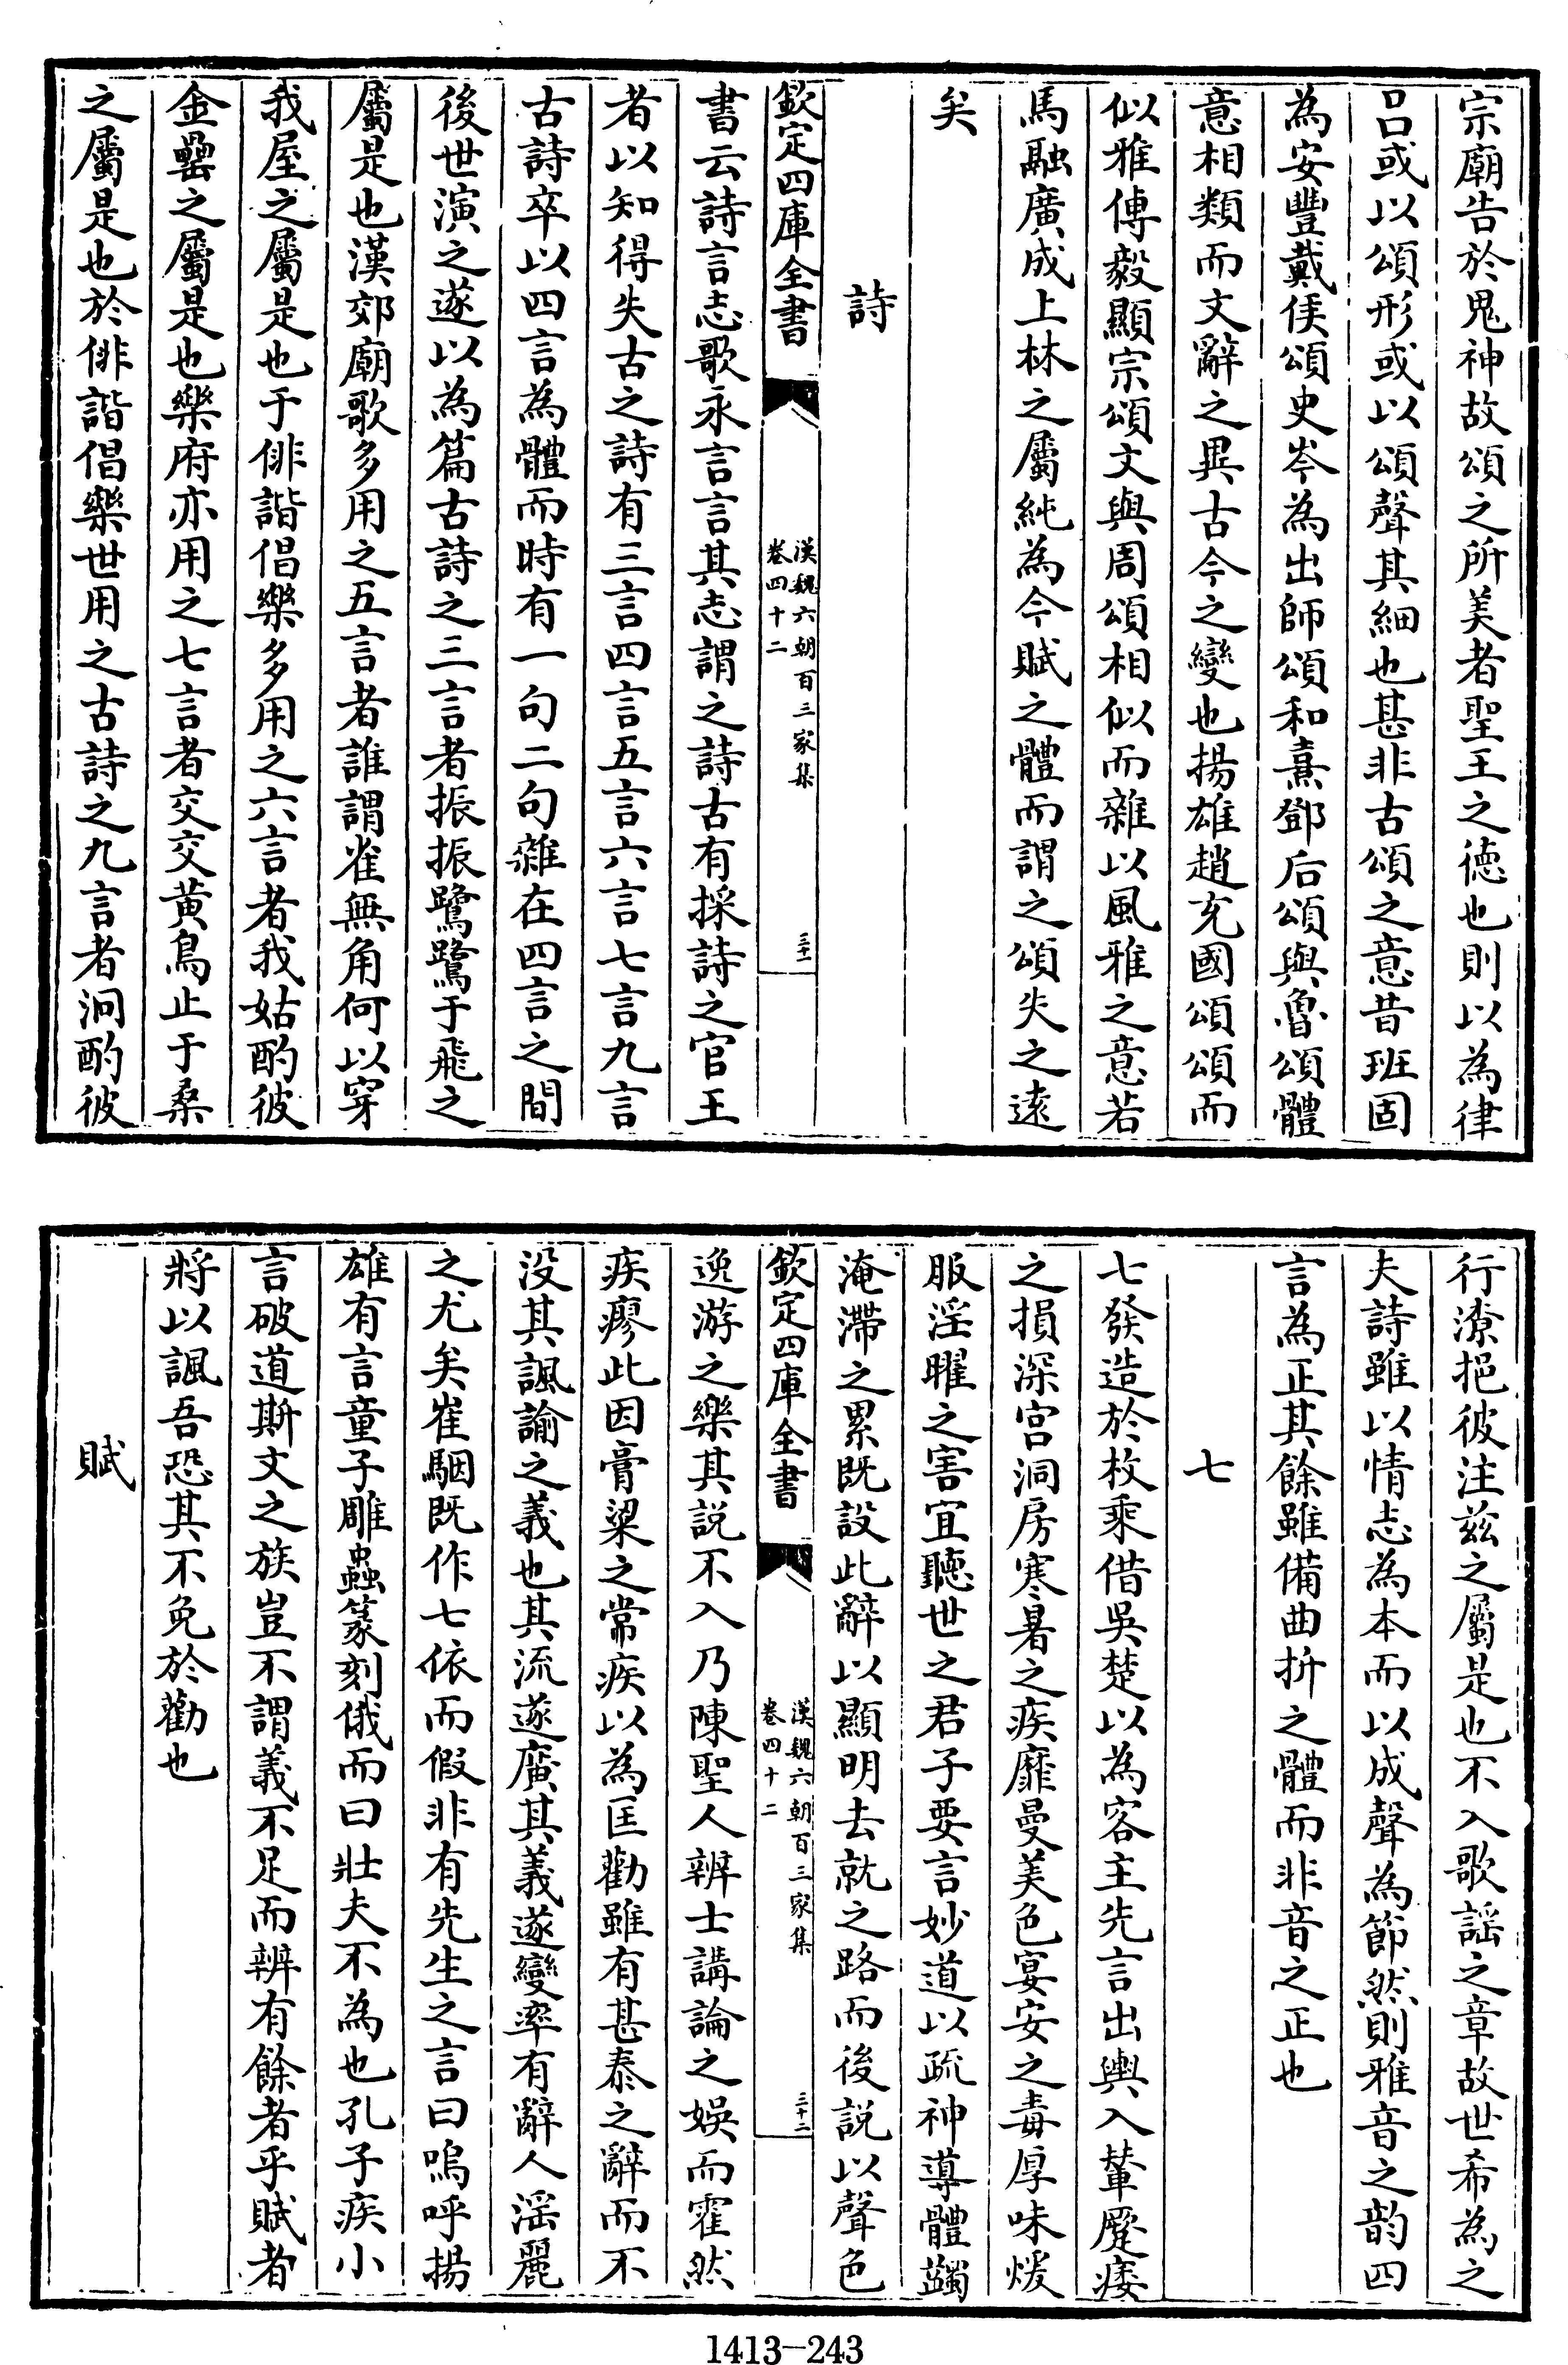 宗廟告於鬼神故頌之所美者聖王之徳也則以為律
吕或以頌形或以頌聲其細也甚非古頌之意昔班固
為安豐戴侯頌史岑為出師頌和熹鄧后頌與魯頌體
意相類而文辭之異古今之變也揚雄趙充國頌頌而
似雅傅毅顯宗頌文與周頌相似而雜以風雅之意若
馬融廣成上林之屬純為今賦之體而謂之頌失之逺
矣
詩
欽定四庫全書
漢魏六朝百三家集
卷四十二
三十一
書云詩言志歌永言言其志謂之詩古有採詩之官王
者以知得失古之詩有三言四言五言六言七言九言
古詩卒以四言為體而時有一句二句雜在四言之間
後世演之遂以為篇古詩之三言者振振鷺鷺于飛之
屬是也漢郊廟歌多用之五言者誰謂雀無角何以穿
我屋之屬是也于俳諧倡樂多用之六言者我姑酌彼
金罍之屬是也樂府亦用之七言者交交黄鳥止于桑
之屬是也於俳諧倡樂世用之古詩之九言者泂酌彼
行潦挹彼注兹之屬是也不入歌謡之章故世希為之
夫詩雖以情志為本而以成聲為節然則雅音之韵四
言為正其餘雖備曲折之體而非音之正也
七
七發造於枚乘借吳楚以為客主先言出輿入輦蹷痿
之損深宫洞房寒暑之疾靡曼美色宴安之毒厚味煖
服淫曜之害宜聽世之君子要言妙道以疏神導體蠲
淹滯之累既設此辭以顯明去就之路而後説以聲色
欽定四庫全書
漢魏六朝百三家集
卷四十二
三十二
逸游之樂其説不入乃陳聖人辨士講論之娱而霍然
疾瘳此因膏粱之常疾以為匡勸雖有甚泰之辭而不
没其諷諭之義也其流遂廣其義遂變率有辭人淫麗
之尤矣崔駰既作七依而假非有先生之言曰嗚呼揚
雄有言童子雕蟲篆刻俄而曰壯夫不為也孔子疾小
言破道斯文之族豈不謂義不足而辨有餘者乎賦者
將以諷吾恐其不免於勸也
賦
1413-243